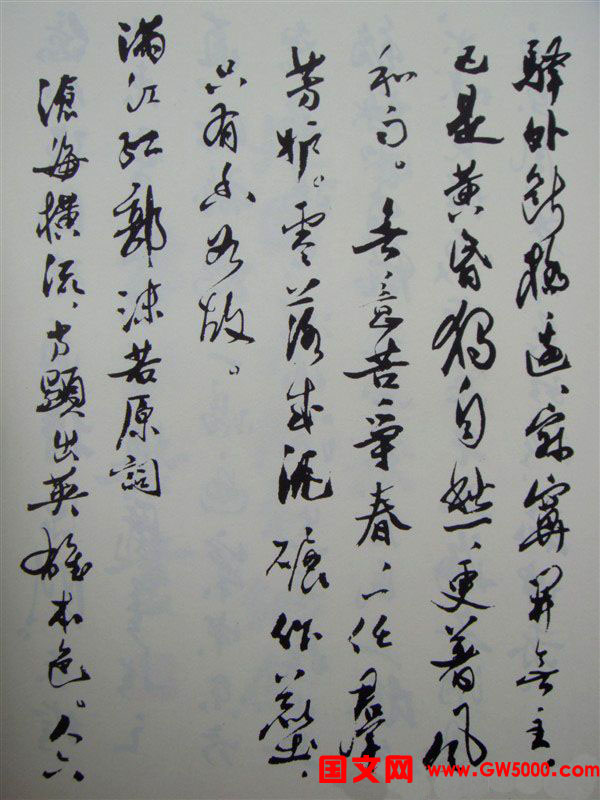 驛外断橋邊、寂寞開無主、
已是黄昏獨自愁、更著風
和雨。無意苦争春、一任群
芳妒。零落成泥碾作塵、
只有香如故。
满江红郭沫若原詞
滄海横流、方顕出英雄本色。人六
国文网 www.GW5000.com